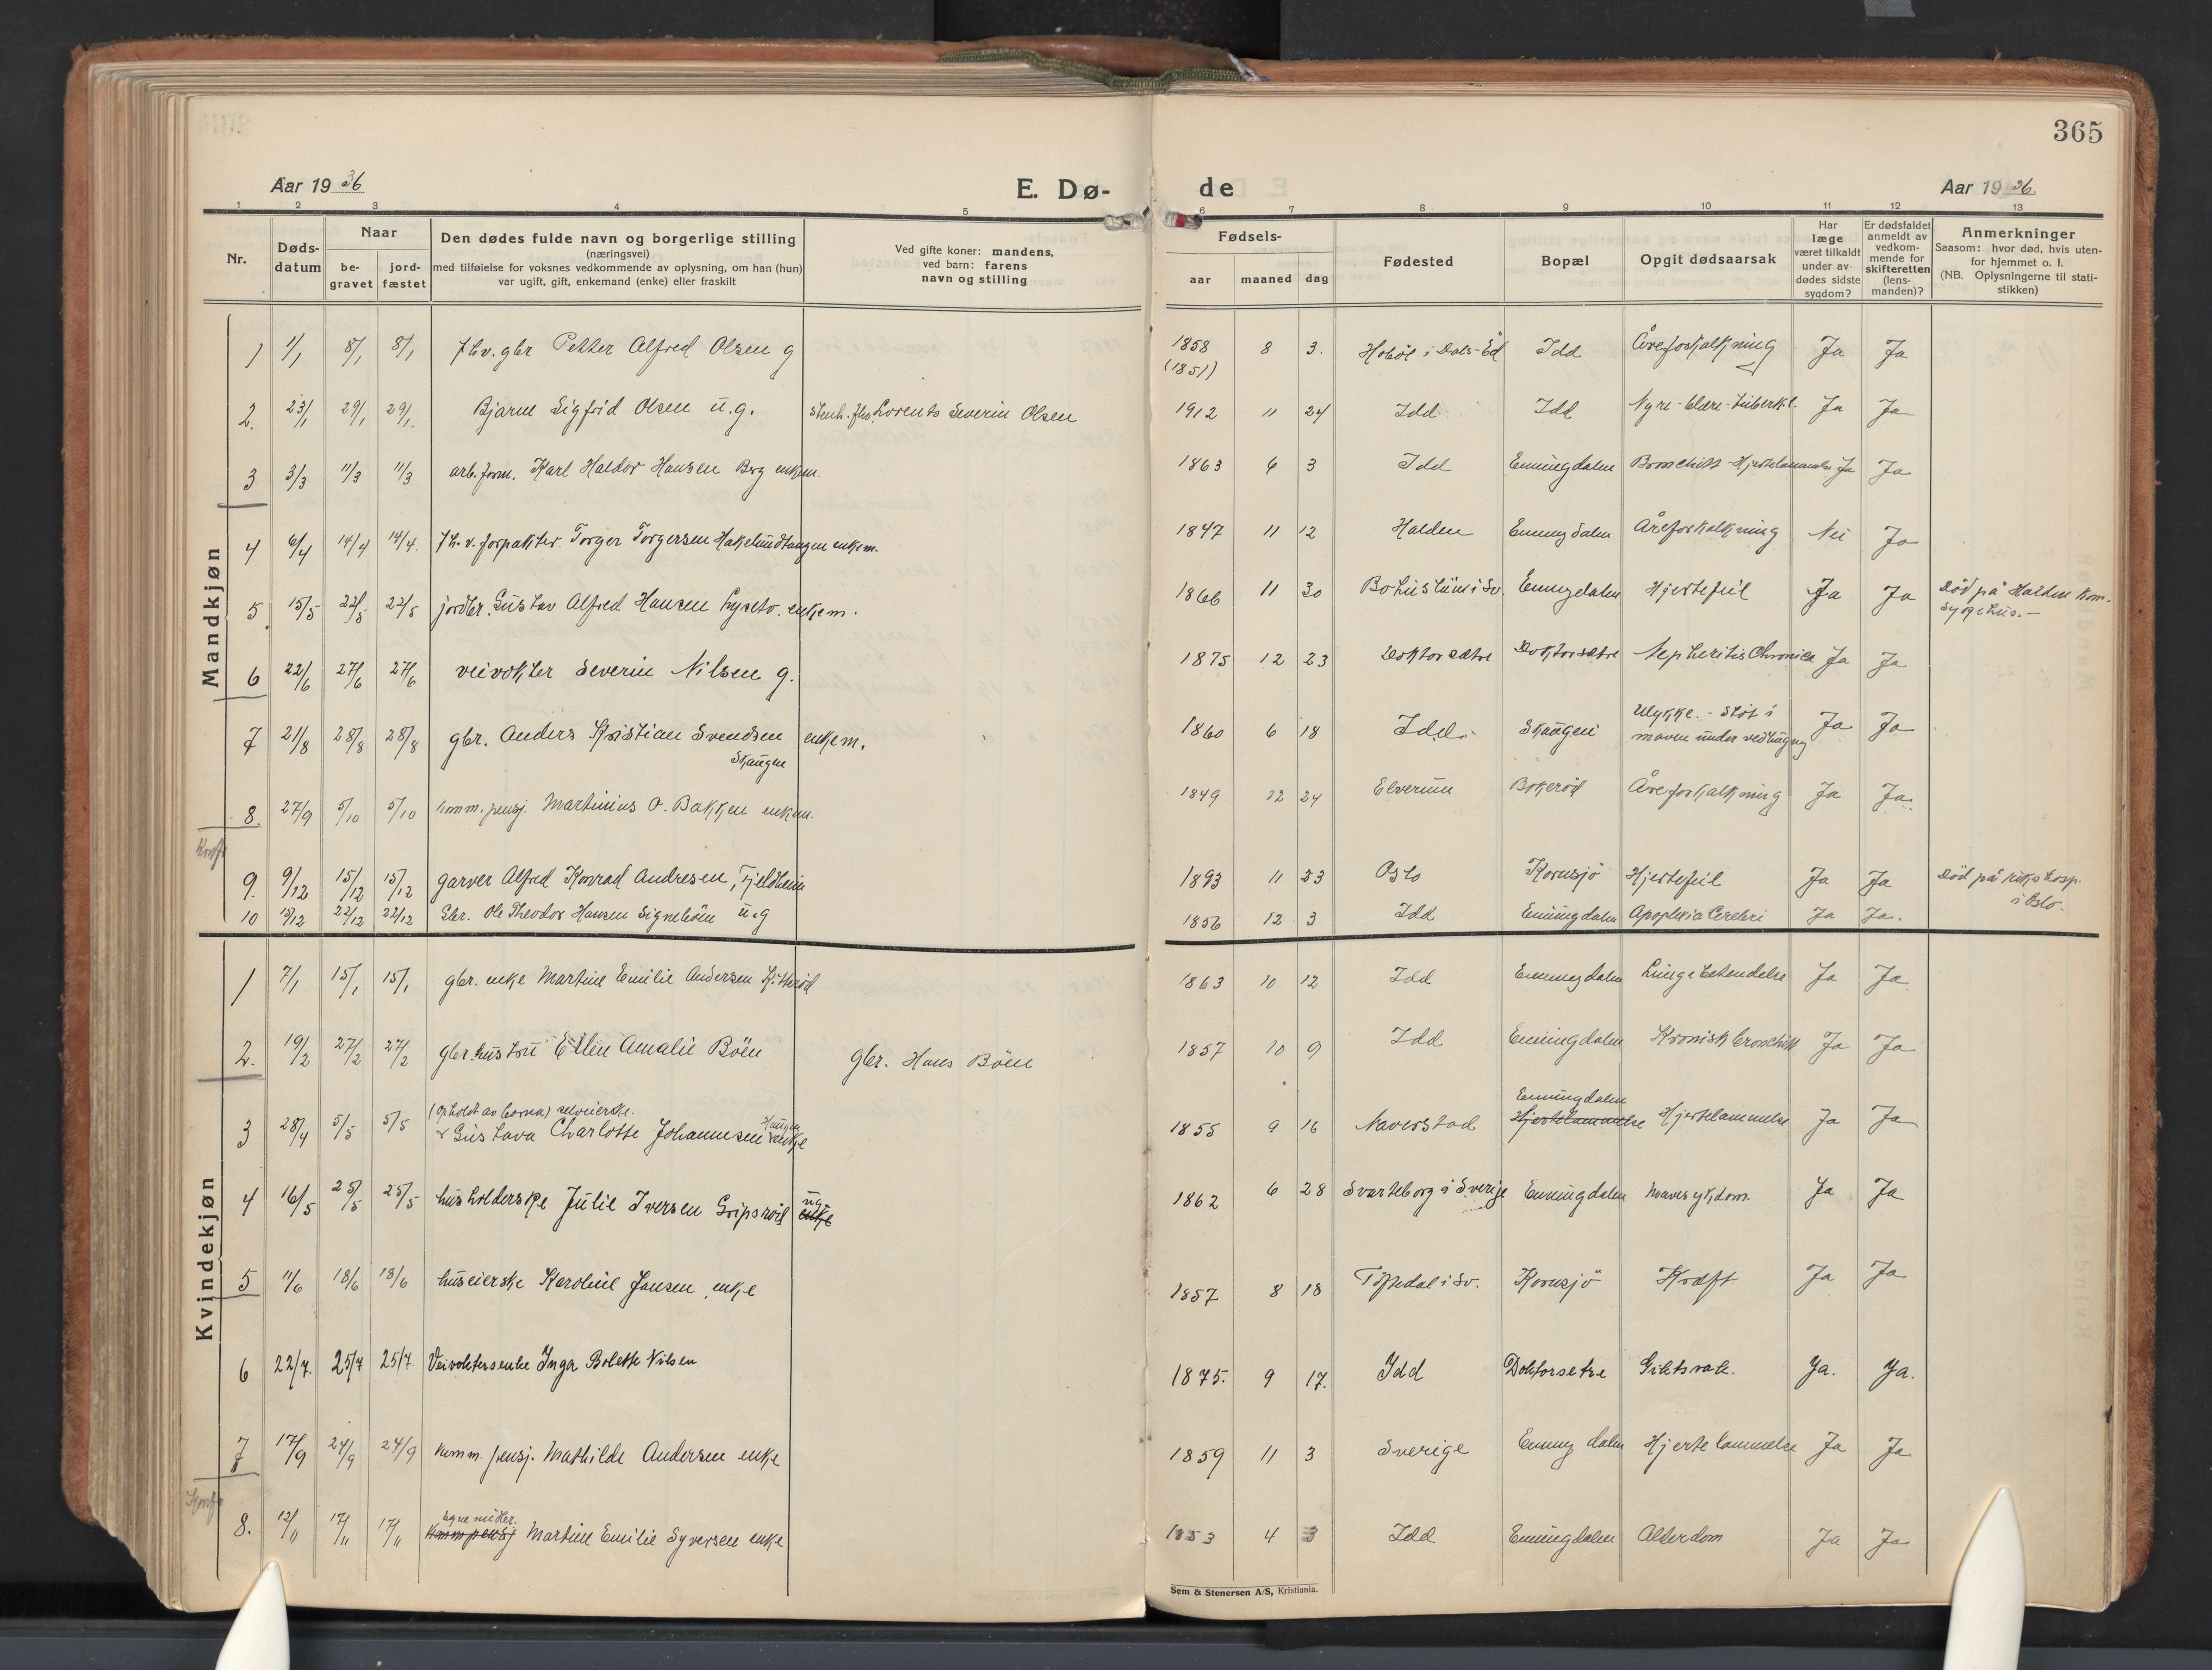 365
Aar 1936
E. Dø-
de
Aar 1936.
1 2 3 4 5 6 7 8 9 10 11 12 13
Nr.
Døds-
datum
Naar
be-
gravet
jord-
fæstet
Den dødes fulde navn og borgerlige stilling
(næringsvei)
med tilføielse for voksnes vedkommende av oplysning, om han (hun)
var ugift, gift, enkemand (enke) eller fraskilt
Ved gifte koner: mandens,
ved barn: farens
navn og stilling
Fødsels-
aar maaned dag
Fødested
Bopæl
Opgit dødsaarsak
Har
læge
været tilkaldt
under av-
dødes sidste
sygdom?
Er dødsfaldet
anmeldt av
vedkom-
mende for
skifteretten
(lens-
manden)?
Anmerkninger
Saasom: hvor død, hvis uten-
for hjemmet o. l.
(NB. Oplysningerne til stati-
stikken)
Mandkjøn
1 1/1 8/1 8/1 fhv. gbr Petter Alfred Olsen g 1858 8 3. i Dals-Ed Idd Åreforkalkning Ja Ja
(1851)
2. 23/1 29/1 29/1. Bjarne Sigfrid Olsen u.g. Lorents Severin Olsen 1912 11 24 Idd Idd Nyre-blære-tuberkl. Ja Ja
3 3/3 11/3 11/3 arb. form. Karl Haldor Hansen Berg enkem. 1863 6 3 Idd Enningdalen Bronchitt-Hjertelammelse Ja Ja
4 6/4 14/4 14/4. fh.v. forpakter Torger Torgersen Hakelundtangen enkem. 1847 11 12 Halden Enningdalen Åreforkalkning Nei Ja
5. 15/5 22/5 22/5 jordbr. Gustav Alfred Hansen enkem. 1866 11 30 Bohuslän i Sv. Enningdalen Hjertefeil Ja Ja Död på Halden kom.
sygehus.-
6 22/6 27/6 27/6 veivokter Severin Nilsen g. 1875 12 23 Doktorsætre Doktorsætre Nepheritis Chronica Ja Ja
7 21/8 28/8 28/8 gbr. Anders Kristian Svendsen enkem. 1860 6 18 Idd. Skaugen Ulykke. - Stöt i Ja Ja
Skaugen
maven under vedhugng
8. 27/9 5/10 5/10 komm. pensj. Martinius O. Bakken enkem. 1849 12 24 Elverum Bokerød Åreforkalkning Ja Ja.
9. 9/12 15/12 15/12 garver Alfred Konrad Andresen, Fjeldheim 1893 11 23 Oslo Kornsjö Hjertefeil Ja Ja Död på rikshosp.
i Oslo.
10 15/12 22/12 22/12 Gbr. Ole Theodor Hansen Signebøen u.g 1856 12 3 Idd Enningdalen Apoplexia Cerebri Ja Ja.
Kvindekjøn
1 7/1 15/1 15/1 gbr. enke Martine Emilie Andersen Kitteröd 1863 10 12 Idd Enningdalen Lungebetendelse Ja Ja
2. 19/2 27/2 27/2 gbr. hustru Ellen Amalie Böen gbr. Hans Böen 1857 10 9 Idd Enningdalen Kronisk bronchitt Ja Ja
(opholdt av barna) selveierske. Haugen Enningdalen
3 28/4 5/5 5/5 Gustava Charlotte Johannesen enke 1855 9 16 Naverstad Hjertelammelse Hjertelammelse Ja Ja
ug.
4 16/5 25/5 25/5 husholderske Julie Iversen Gripsröd enke 1862 6 28 Svarteborg i Sverige Enningdalen Mavesykdom. Ja Ja
5 11/6 18/6 18/6 huseierske Karoline Jansen, enke 1857 8 18 Töftedal i Sv. Kornsjö Kræft Ja Ja
6 22/7. 25/7 25/7. Veivoktersenke Inga Bolette Nilsen 1875. 9 17. Idd Doktorsetre Ja. Ja.
7 17/9 24/9 24/9 komm. pensj. Mathilde Andersen enke 1859 11 3 Sverige Enningdalen Hjertelammelse Ja Ja
egne midler.
8. 12/11 17/11 17/11 komm pensj Martine Emilie Syversen enke 1853 4 3 Idd Enningdalen Alderdom Ja Ja
Sem & Stenersen A/S, Kristiania.